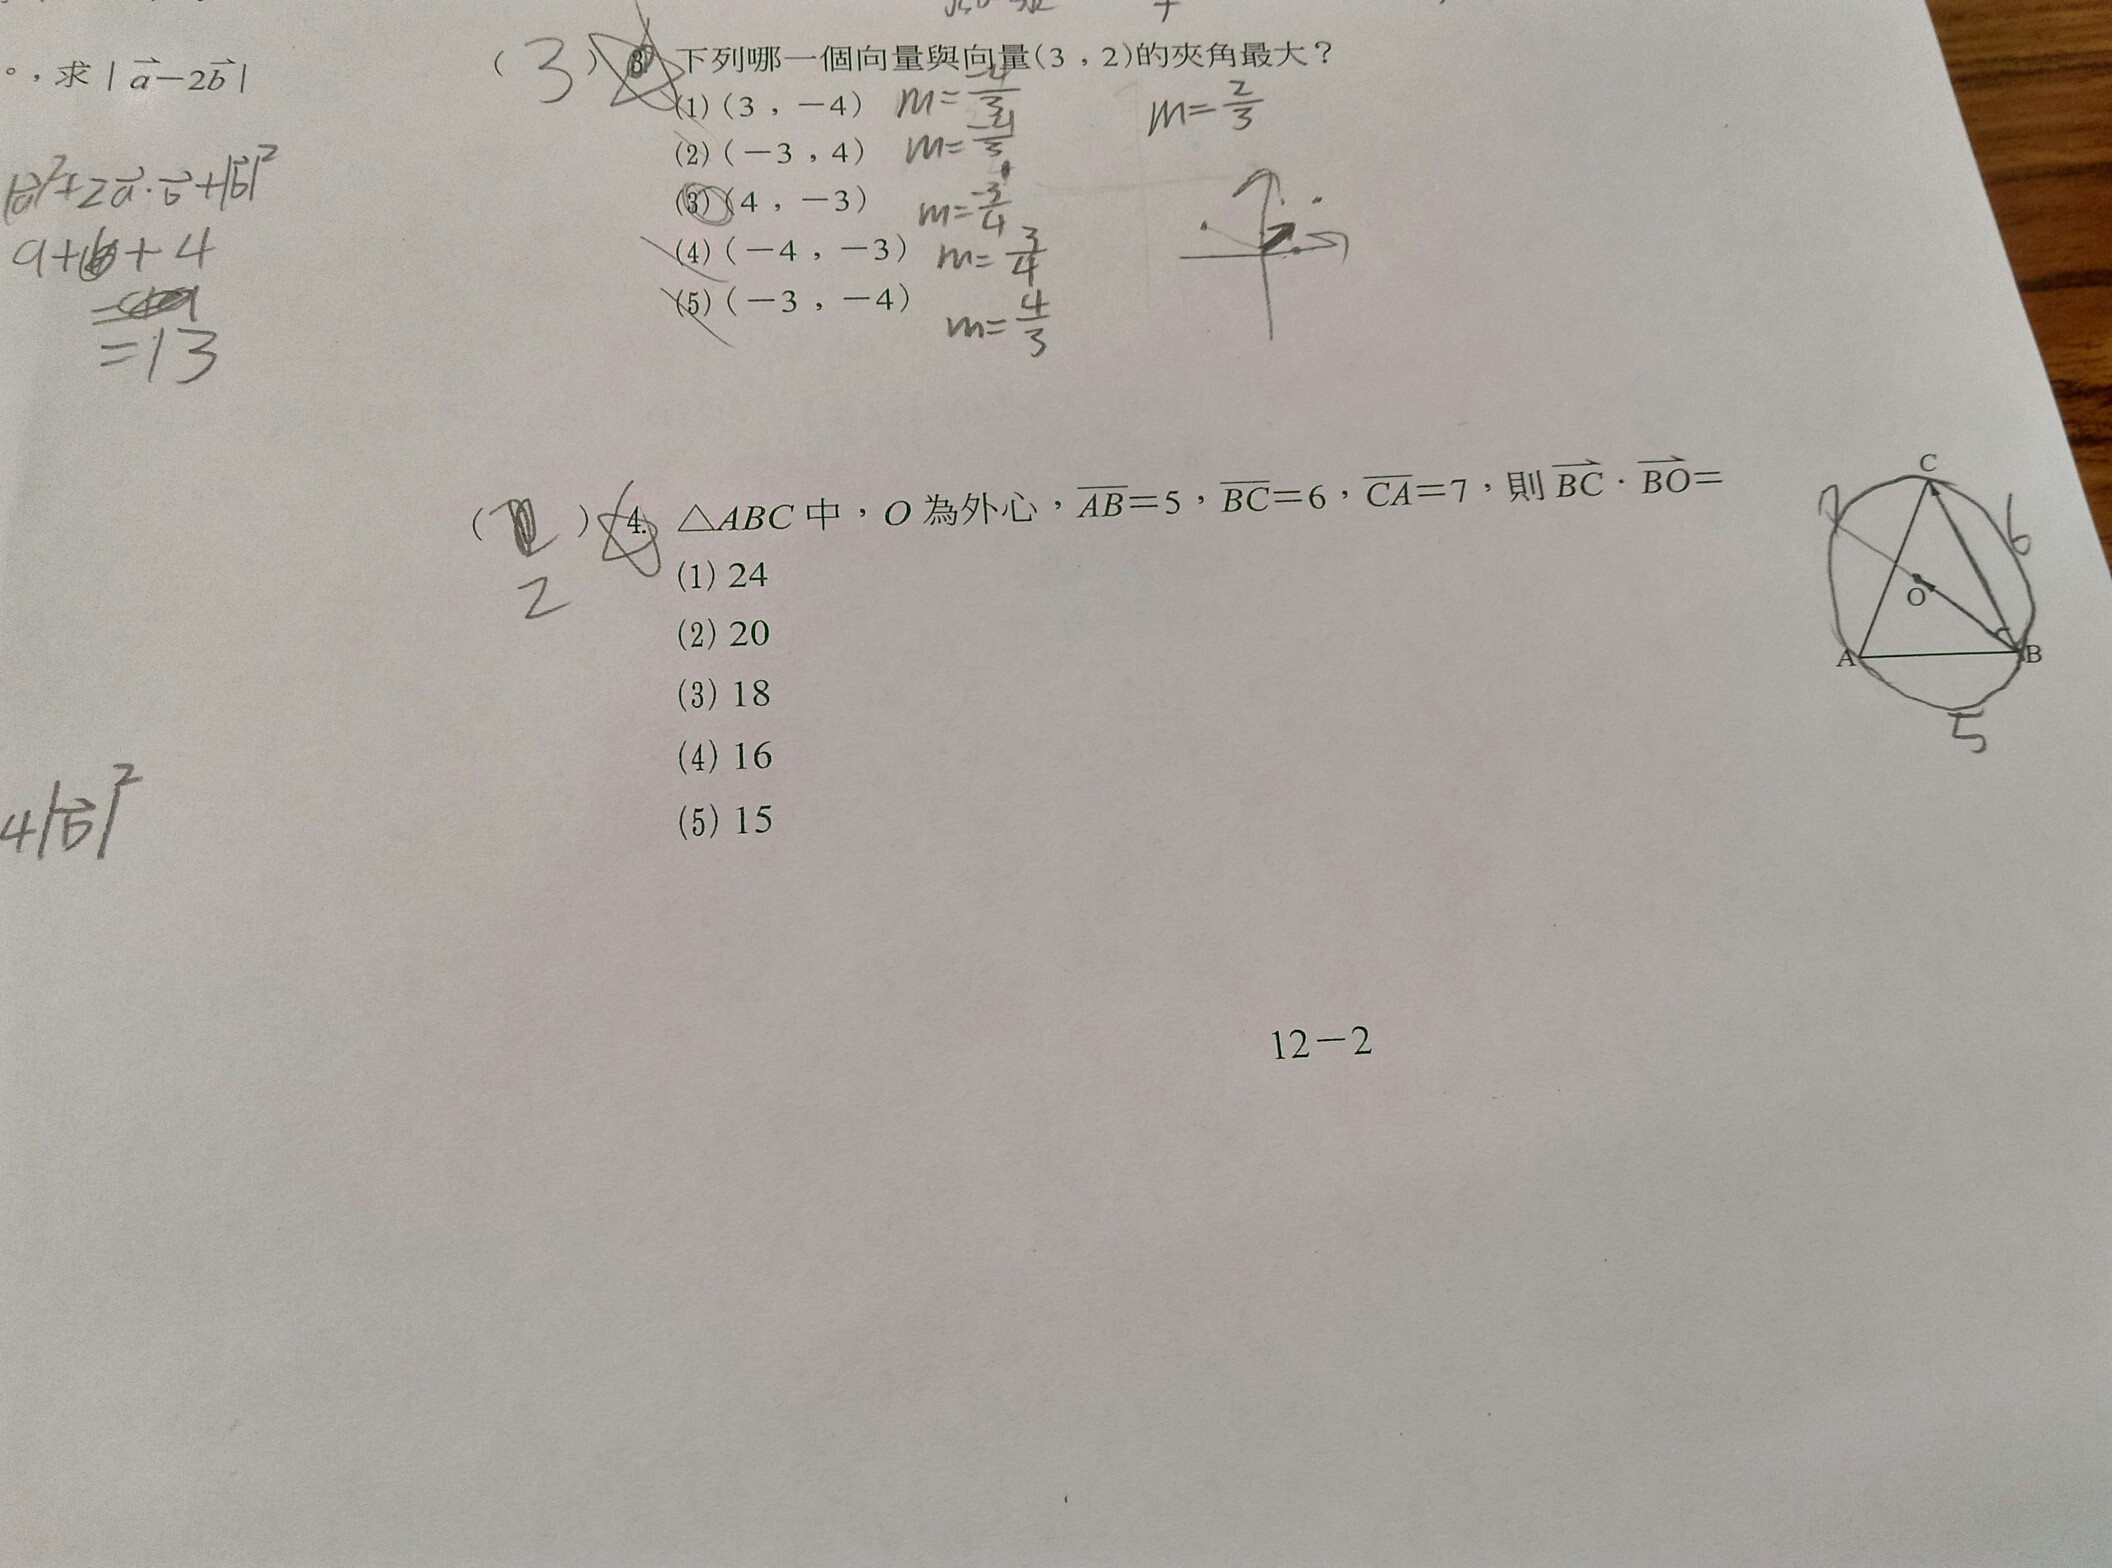 。，求 | a－2b |
|a|²+2a·b+|b|²
9+6+4
=13
4|b|²
( 3 ) 3. 下列哪一個向量與向量(3，2)的夾角最大？
(1) (3，－4) m=-4/3 m=2/3
(2) (－3，4) m=-4/3
(3) (4，－3) m=-3/4
(4) (－4，－3) m=3/4
(5) (－3，－4) m=4/3
( ) 4. △ABC 中，O 為外心，AB＝5，BC＝6，CA＝7，則 BC · BO＝
2
(1) 24
(2) 20
(3) 18
(4) 16
(5) 15
C
7
6
O
A
B
5
12－2